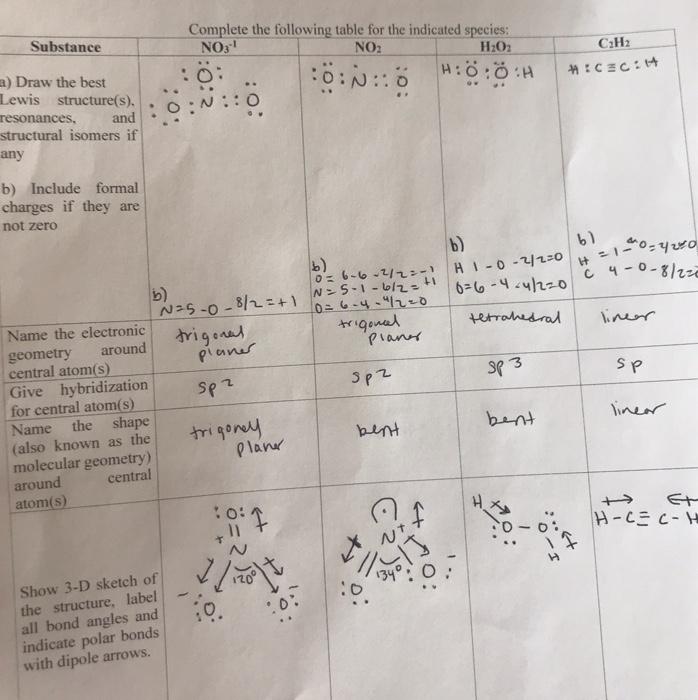 Complete the following table for the indicated species:
Substance NO₃⁻¹ NO₂ H₂O₂ C₂H₂
a) Draw the best
Lewis structure(s),
resonances, and
structural isomers if
any
:O:
:O:N::O
:O:N::O
H:O:O:H
H:C≡C:H
b) Include formal
charges if they are
not zero
b)
N=5-0-8/2=+1
b)
O=6-6-2/2=-1
N=5-1-6/2=+1
O=6-4-4/2=0
b)
H 1-0-2/2=0
O=6-4-4/2=0
b)
H = 1-0=2/2=0
C 4-0-8/2=
Name the electronic
geometry around
central atom(s)
trigonal
planar
trigonal
planar
tetrahedral
linear
Give hybridization
for central atom(s)
sp2
sp2
sp3
sp
Name the shape
(also known as the
molecular geometry)
around central
atom(s)
trigonal
planar
bent
bent
linear
Show 3-D sketch of
the structure, label
all bond angles and
indicate polar bonds
with dipole arrows.
:O:
+
N
120°
- :O: :O: -
N+
134°
:O :O: -
H
:O-O:
H
H-C≡C-H